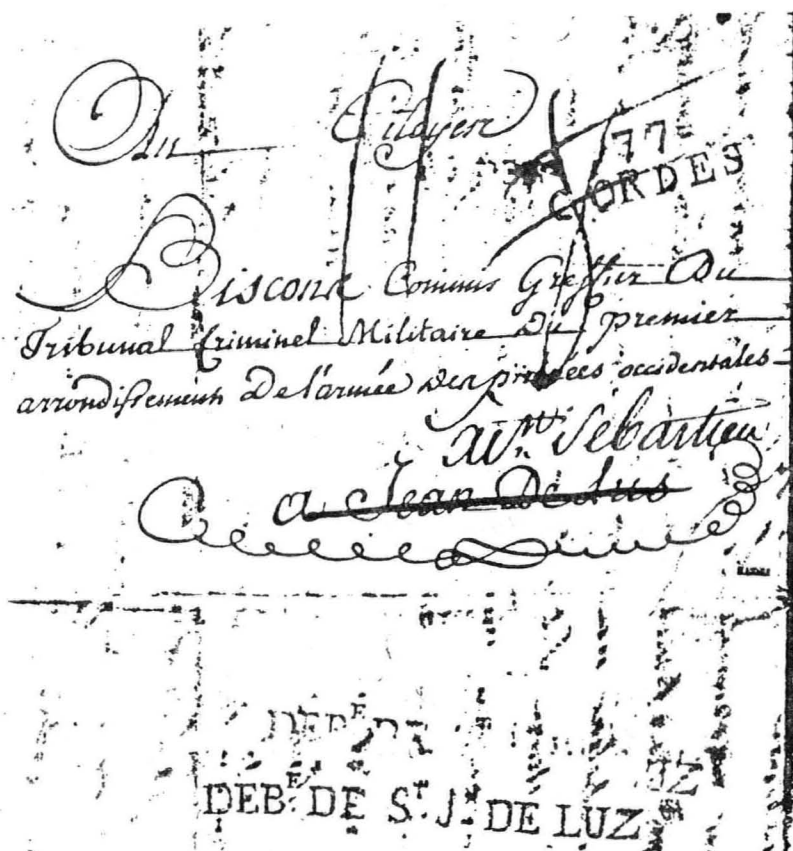 Au Citoyen
77
CORDES
Biscons Commis Greffier Du
Tribunal Criminel Militaire Du premier
arrondissement De l'armée des pirénées occidentales
a St Sébastien
a Jean De Lus
DEBÉ DE
DEBÉ DE ST J. DE LUZ